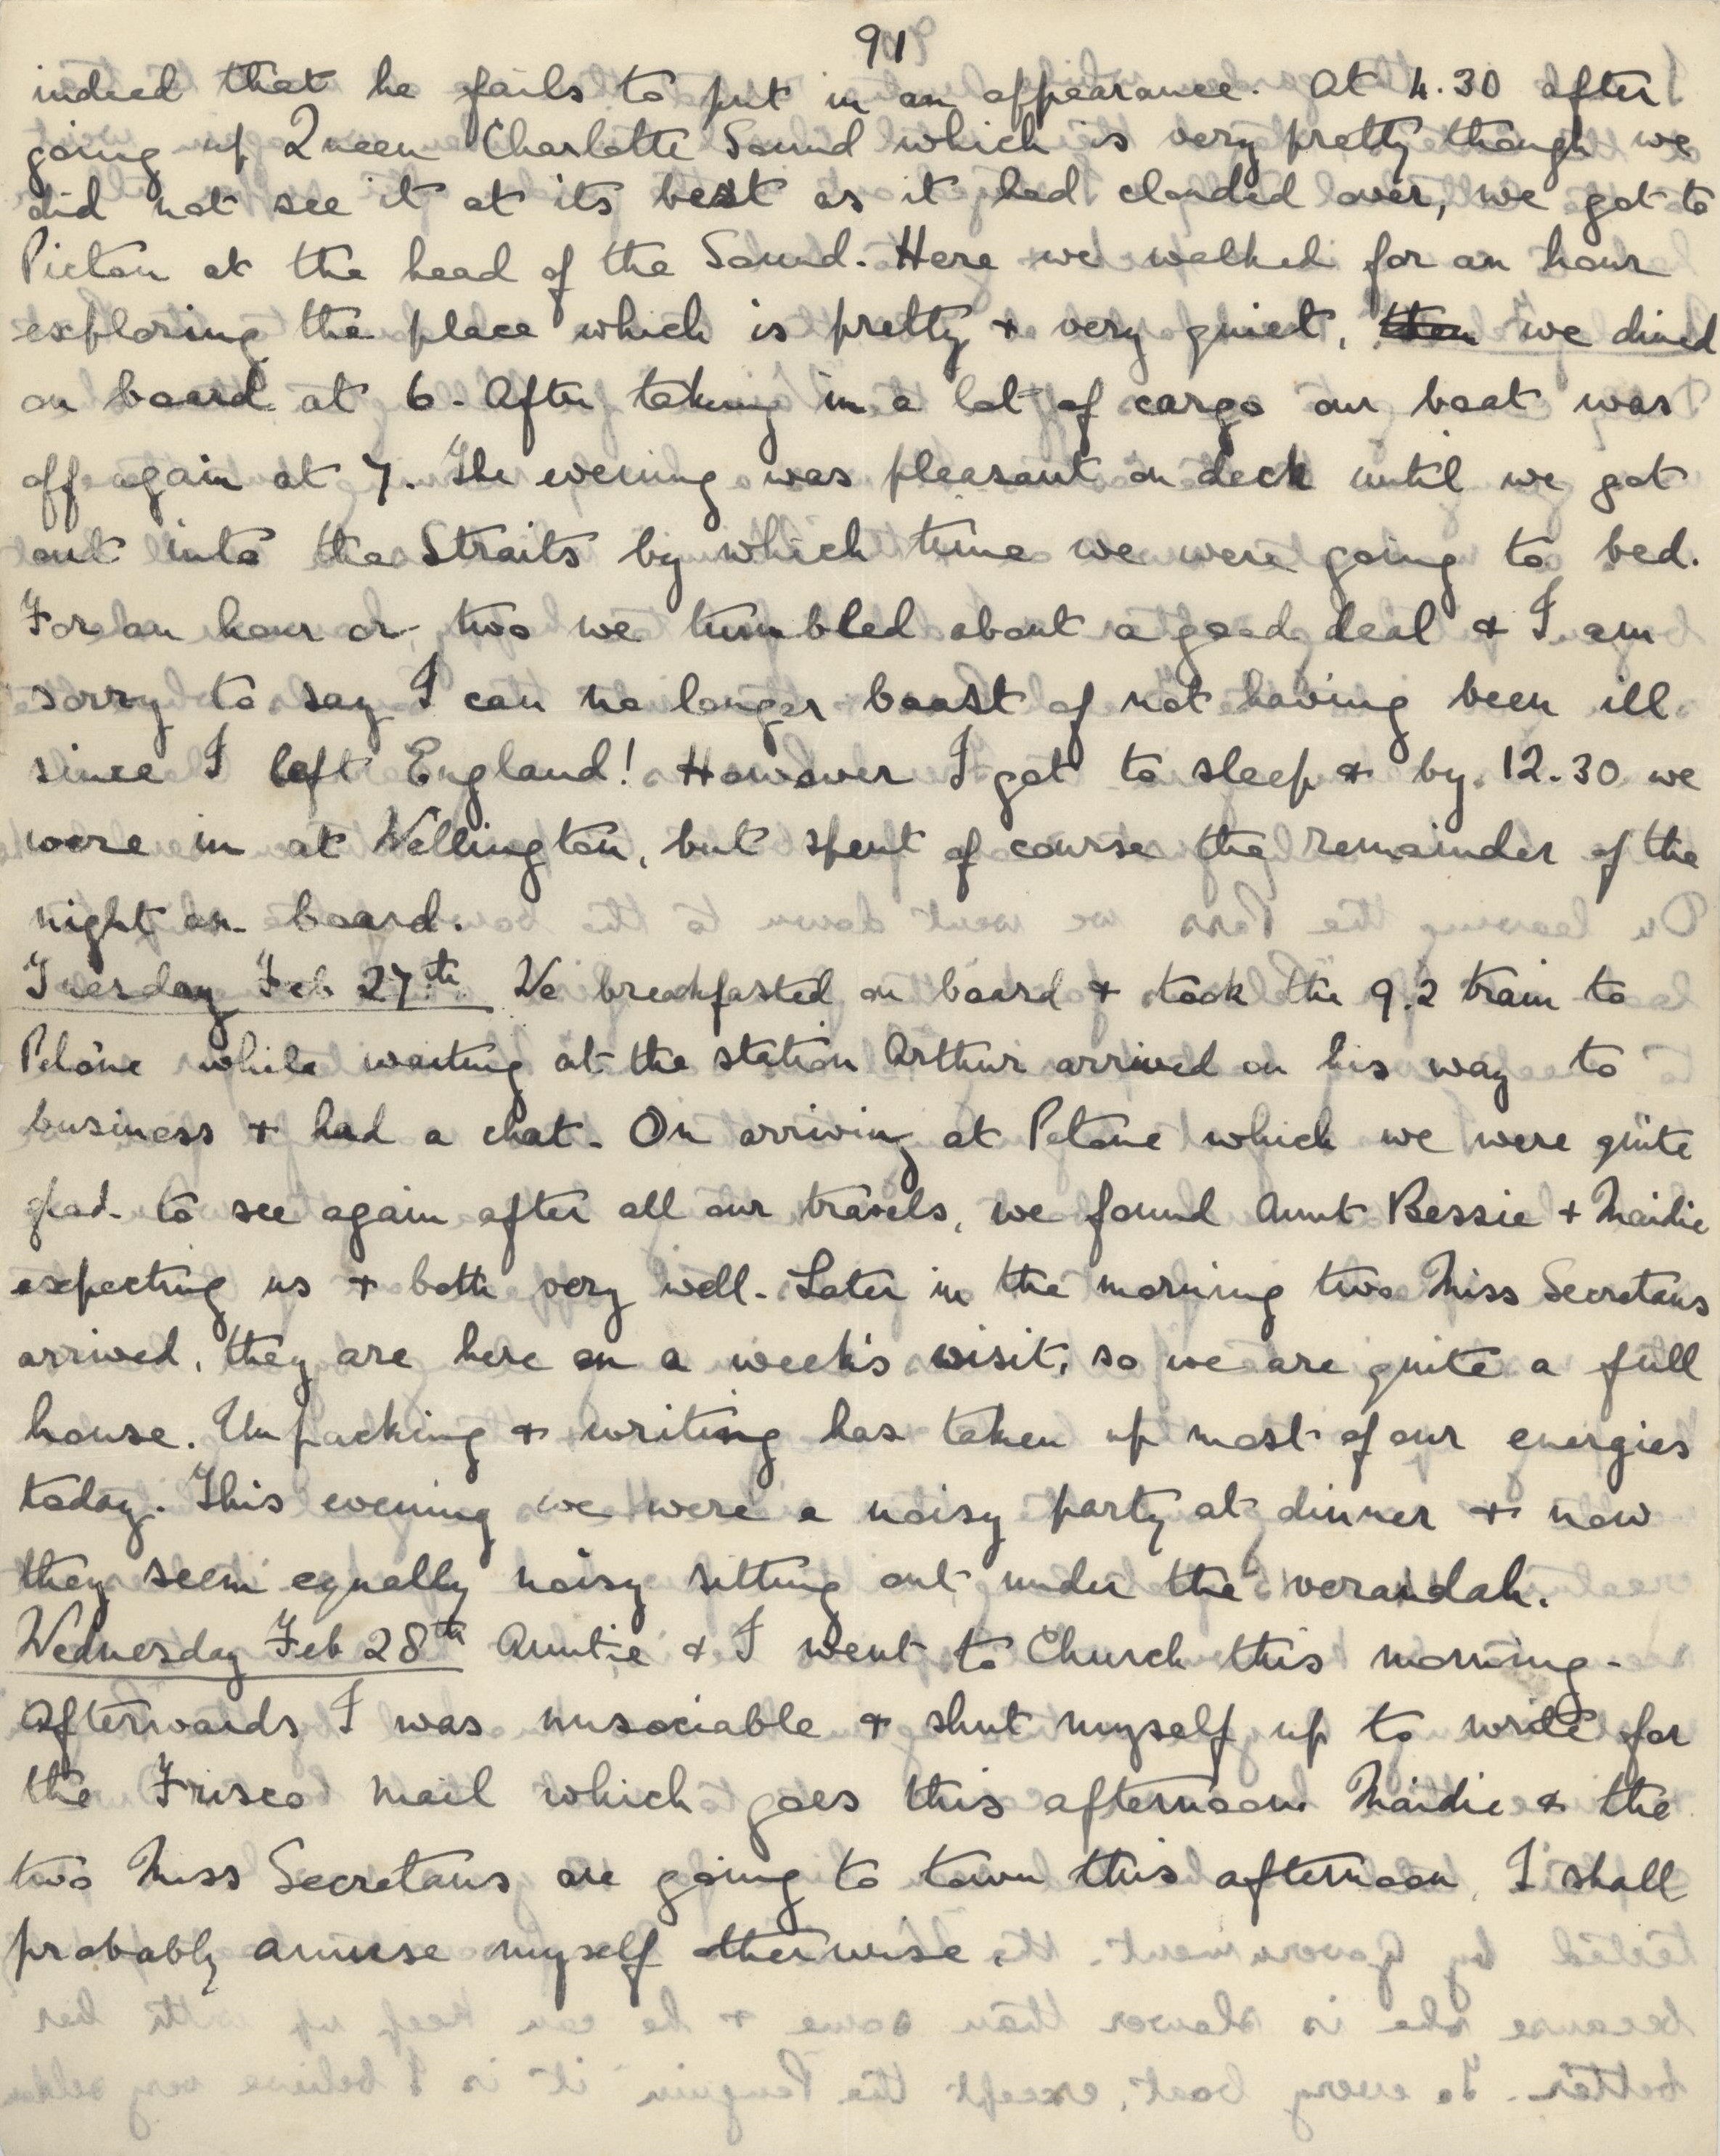 91
indeed that he fails to put in an appearance. At 4.30 after
going up Queen Charlotte Sound which is very pretty though we
did not see it at its best as it had clouded over, we got to
Picton at the head of the Sound. Here we walked for an hour
exploring the place which is pretty & very quiet, then we dined
on board at 6. After taking in a lot of cargo our boat was
off again at 7. The evening was pleasant on deck until we got
out into the Straits by which time we were going to bed.
For an hour or two we tumbled about a good deal & I am
sorry to say I can no longer boast of not having been ill
since I left England! However I got to sleep & by 12.30 we
were in at Wellington, but spent of course the remainder of the
night on board.
Tuesday Feb 27th We breakfasted on board & took the 9.2 train to
Petone while waiting at the station Arthur arrived on his way to
business & had a chat. On arriving at Petone which we were quite
glad to see again after all our travels, we found Aunt Bessie & Maidie
expecting us & both very well. Later in the morning two Miss Secretans
arrived, they are here on a week's visit, so we are quite a full
house. Unpacking & writing has taken up most of our energies
today. This evening we were a noisy party at dinner & now
they seem equally noisy sitting out under the verandah.
Wednesday Feb 28th Auntie & I went to Church this morning.
Afterwards I was unsociable & shut myself up to write for
the Frisco mail which goes this afternoon. Maidie & the
two Miss Secretans are going to town this afternoon, I shall
probably amuse myself otherwise.